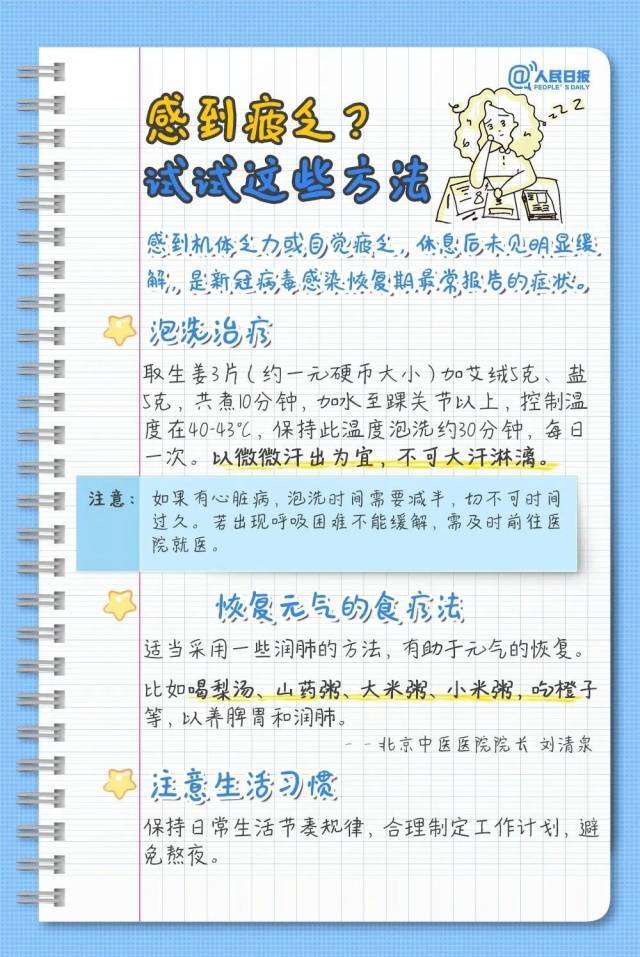 @人民日报
PEOPLE'S DAILY
感到疲乏？
zzz
试试这些方法
感到机体乏力或自觉疲乏，休息后未见明显缓
解，是新冠病毒感染恢复期最常报告的症状。
泡洗治疗
取生姜3片(约一元硬币大小)加艾绒5克、盐
5克，共煮10分钟，加水至踝关节以上，控制温
度在40-43℃，保持此温度泡洗约30分钟，每日
一次。以微微汗出为宜，不可大汗淋漓。
注意：如果有心脏病，泡洗时间需要减半，切不可时间
过久。若出现呼吸困难不能缓解，需及时前往医
院就医。
恢复元气的食疗法
适当采用一些润肺的方法，有助于元气的恢复。
比如喝梨汤、山药粥、大米粥、小米粥，吃橙子
等，以养脾胃和润肺。
--北京中医医院院长 刘清泉
注意生活习惯
保持日常生活节奏规律，合理制定工作计划，避
免熬夜。